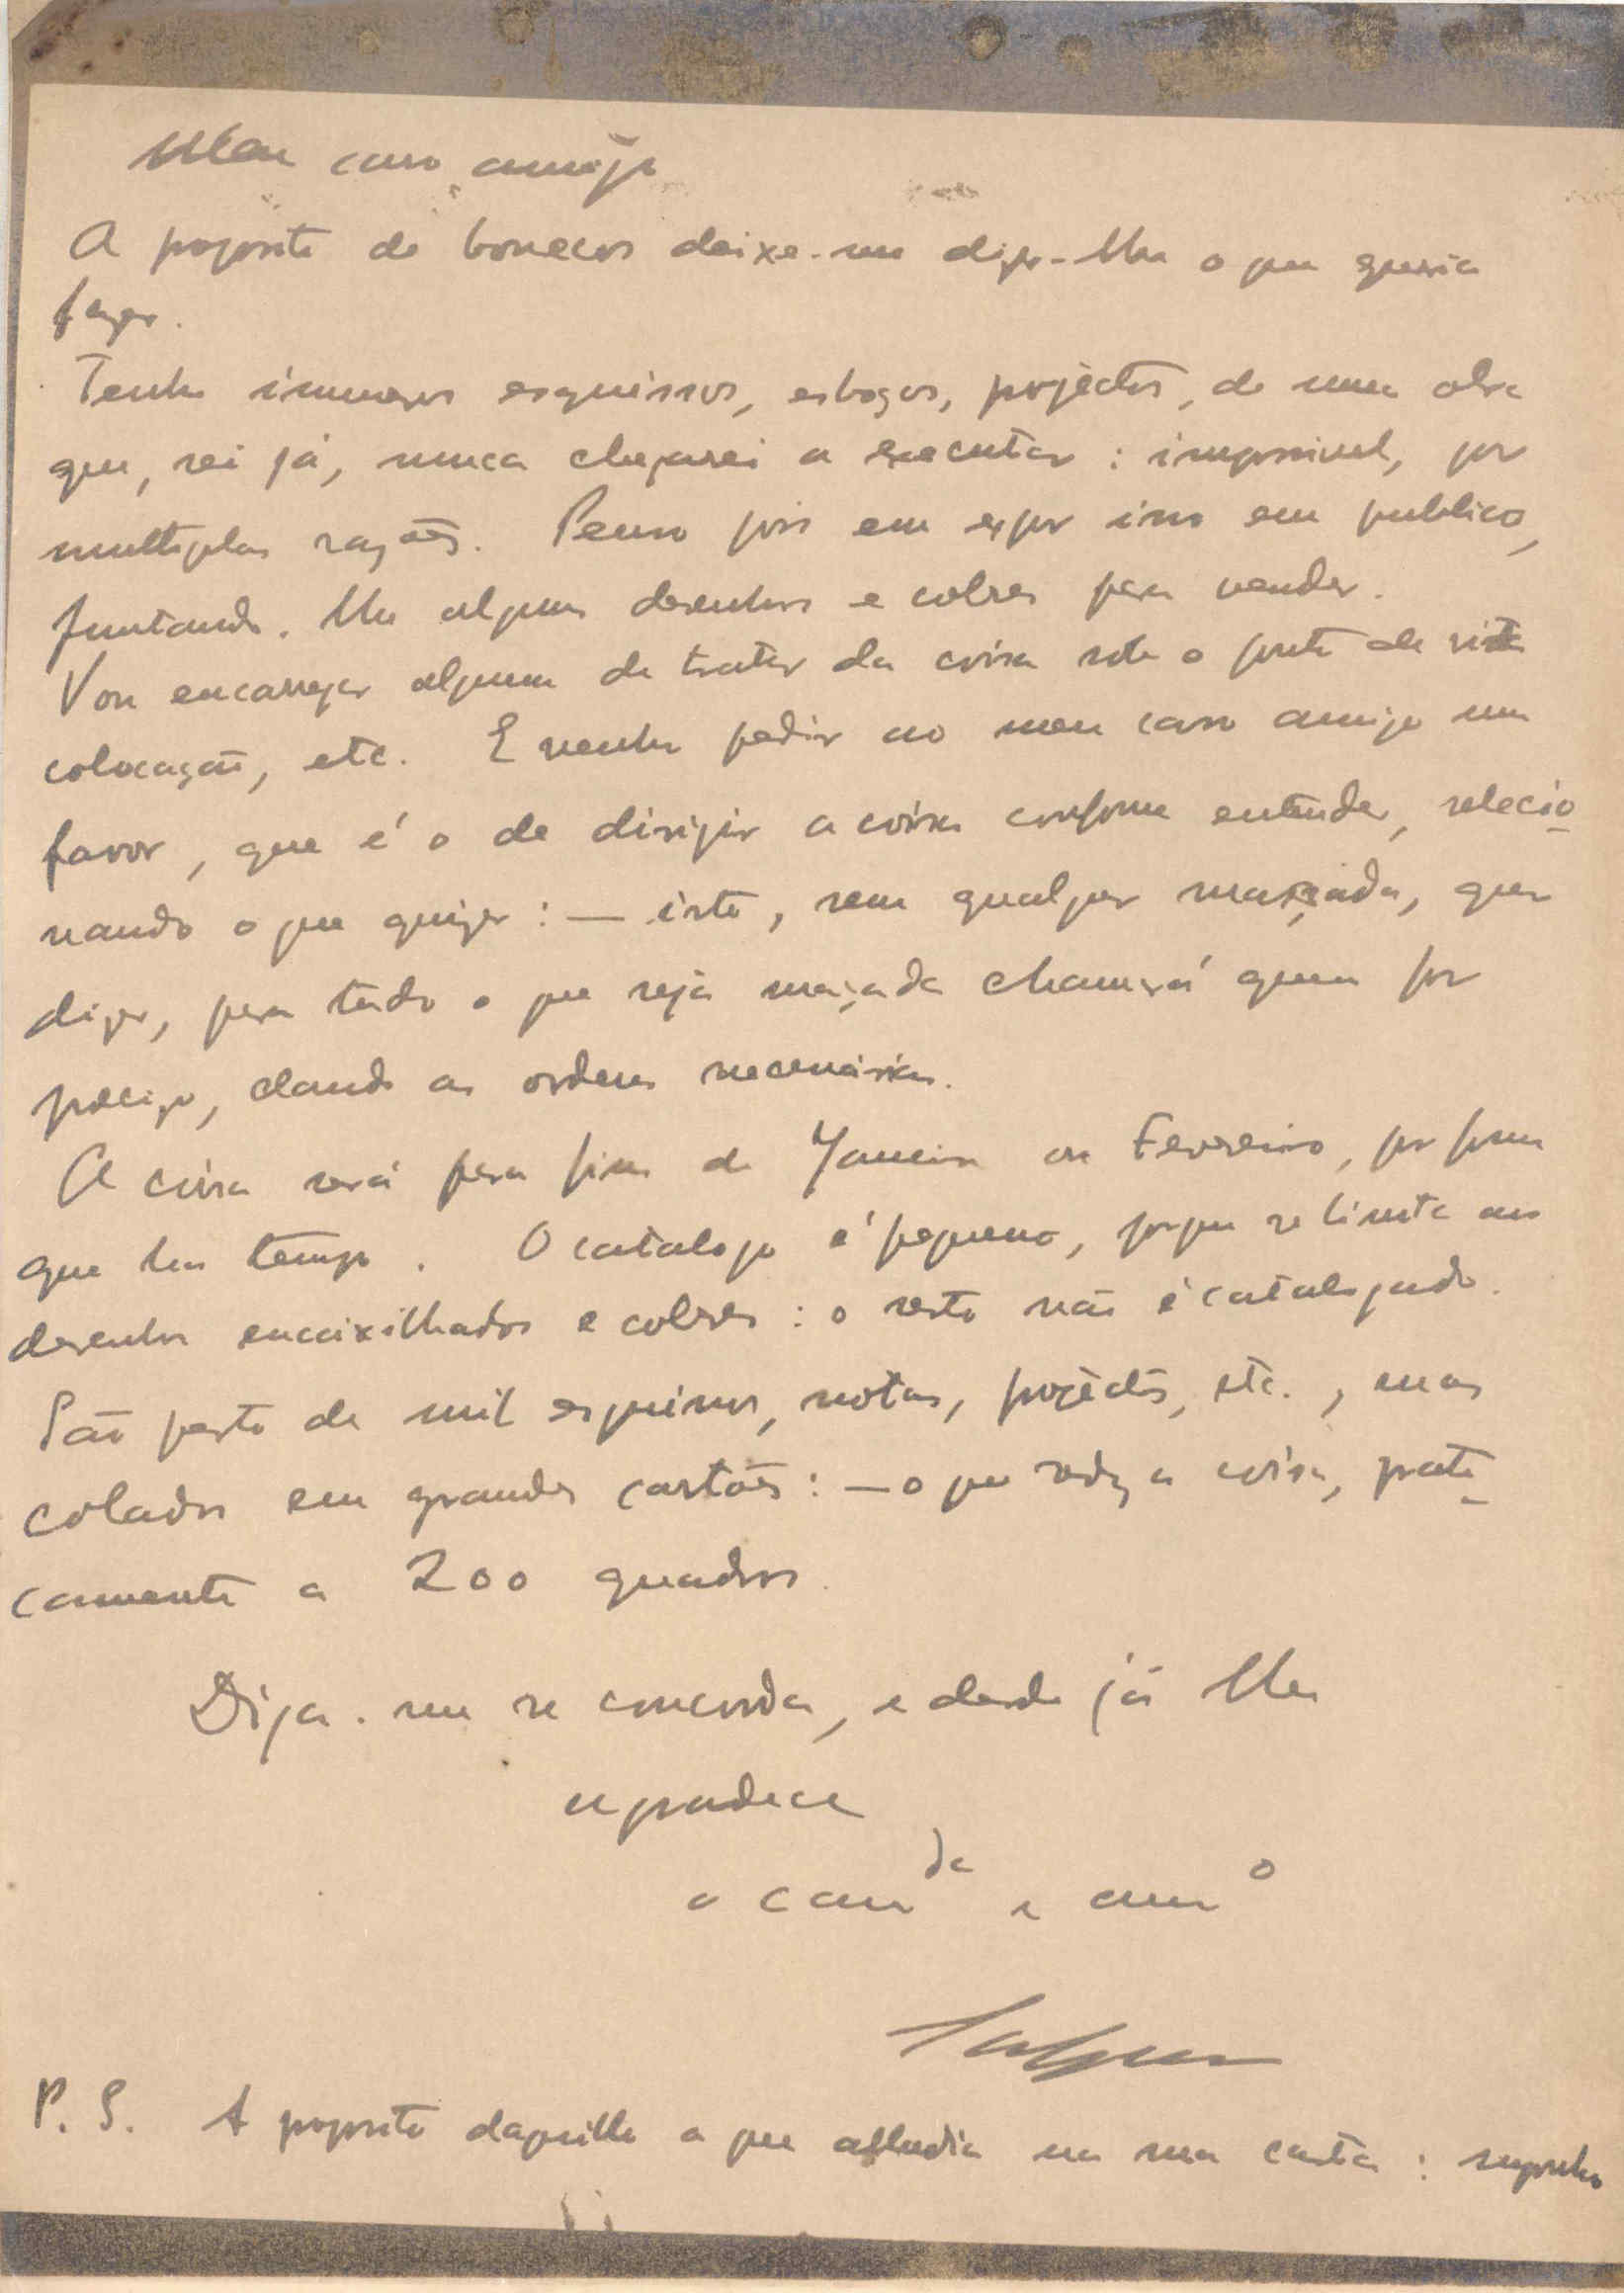 Meu caro amigo
A proposito de bonecos deixe-me dizer-lhe o que queria
fazer.
Tenho inumeros esquissos, esboços, projèctos, de uma obra
que, sei já, nunca chegarei a executar: impossivel, por
multiplas razões. Penso pois em expor isso em publico,
juntando-lhe alguns desenhos e cobres para vender.
Vou encarregar alguem de tratar da coisa sob o ponto de vista
colocação, etc. E venho pedir ao meu caro amigo um
favor, que é o de dirigir a coisa conforme entender, selecio-
nando o que quizer: — isto, sem qualquer massada, quer
dizer, para tudo o que seja maçada chamará quem for
preciso, dando as ordens necessárias.
A coisa será para fins de Janeiro ou Fevereiro, por forma
que ha tempo. O catalogo é pequeno, porque se limita aos
desenhos encaixilhados e cobres: o resto não é catalogado.
São perto de mil esquissos, notas, projèctos, etc., mas
colados em grandes cartões: — o que reduz a coisa, prati-
camente a 200 quadros.
Diga-me se concorda, e desde já lhe
agradece
o cam da e am o
P. S. A proposito daquillo a que alludia na sua carta: suponho